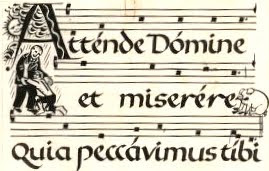 Atténde Dómine
et miserére
Quia peccávimus tíbi